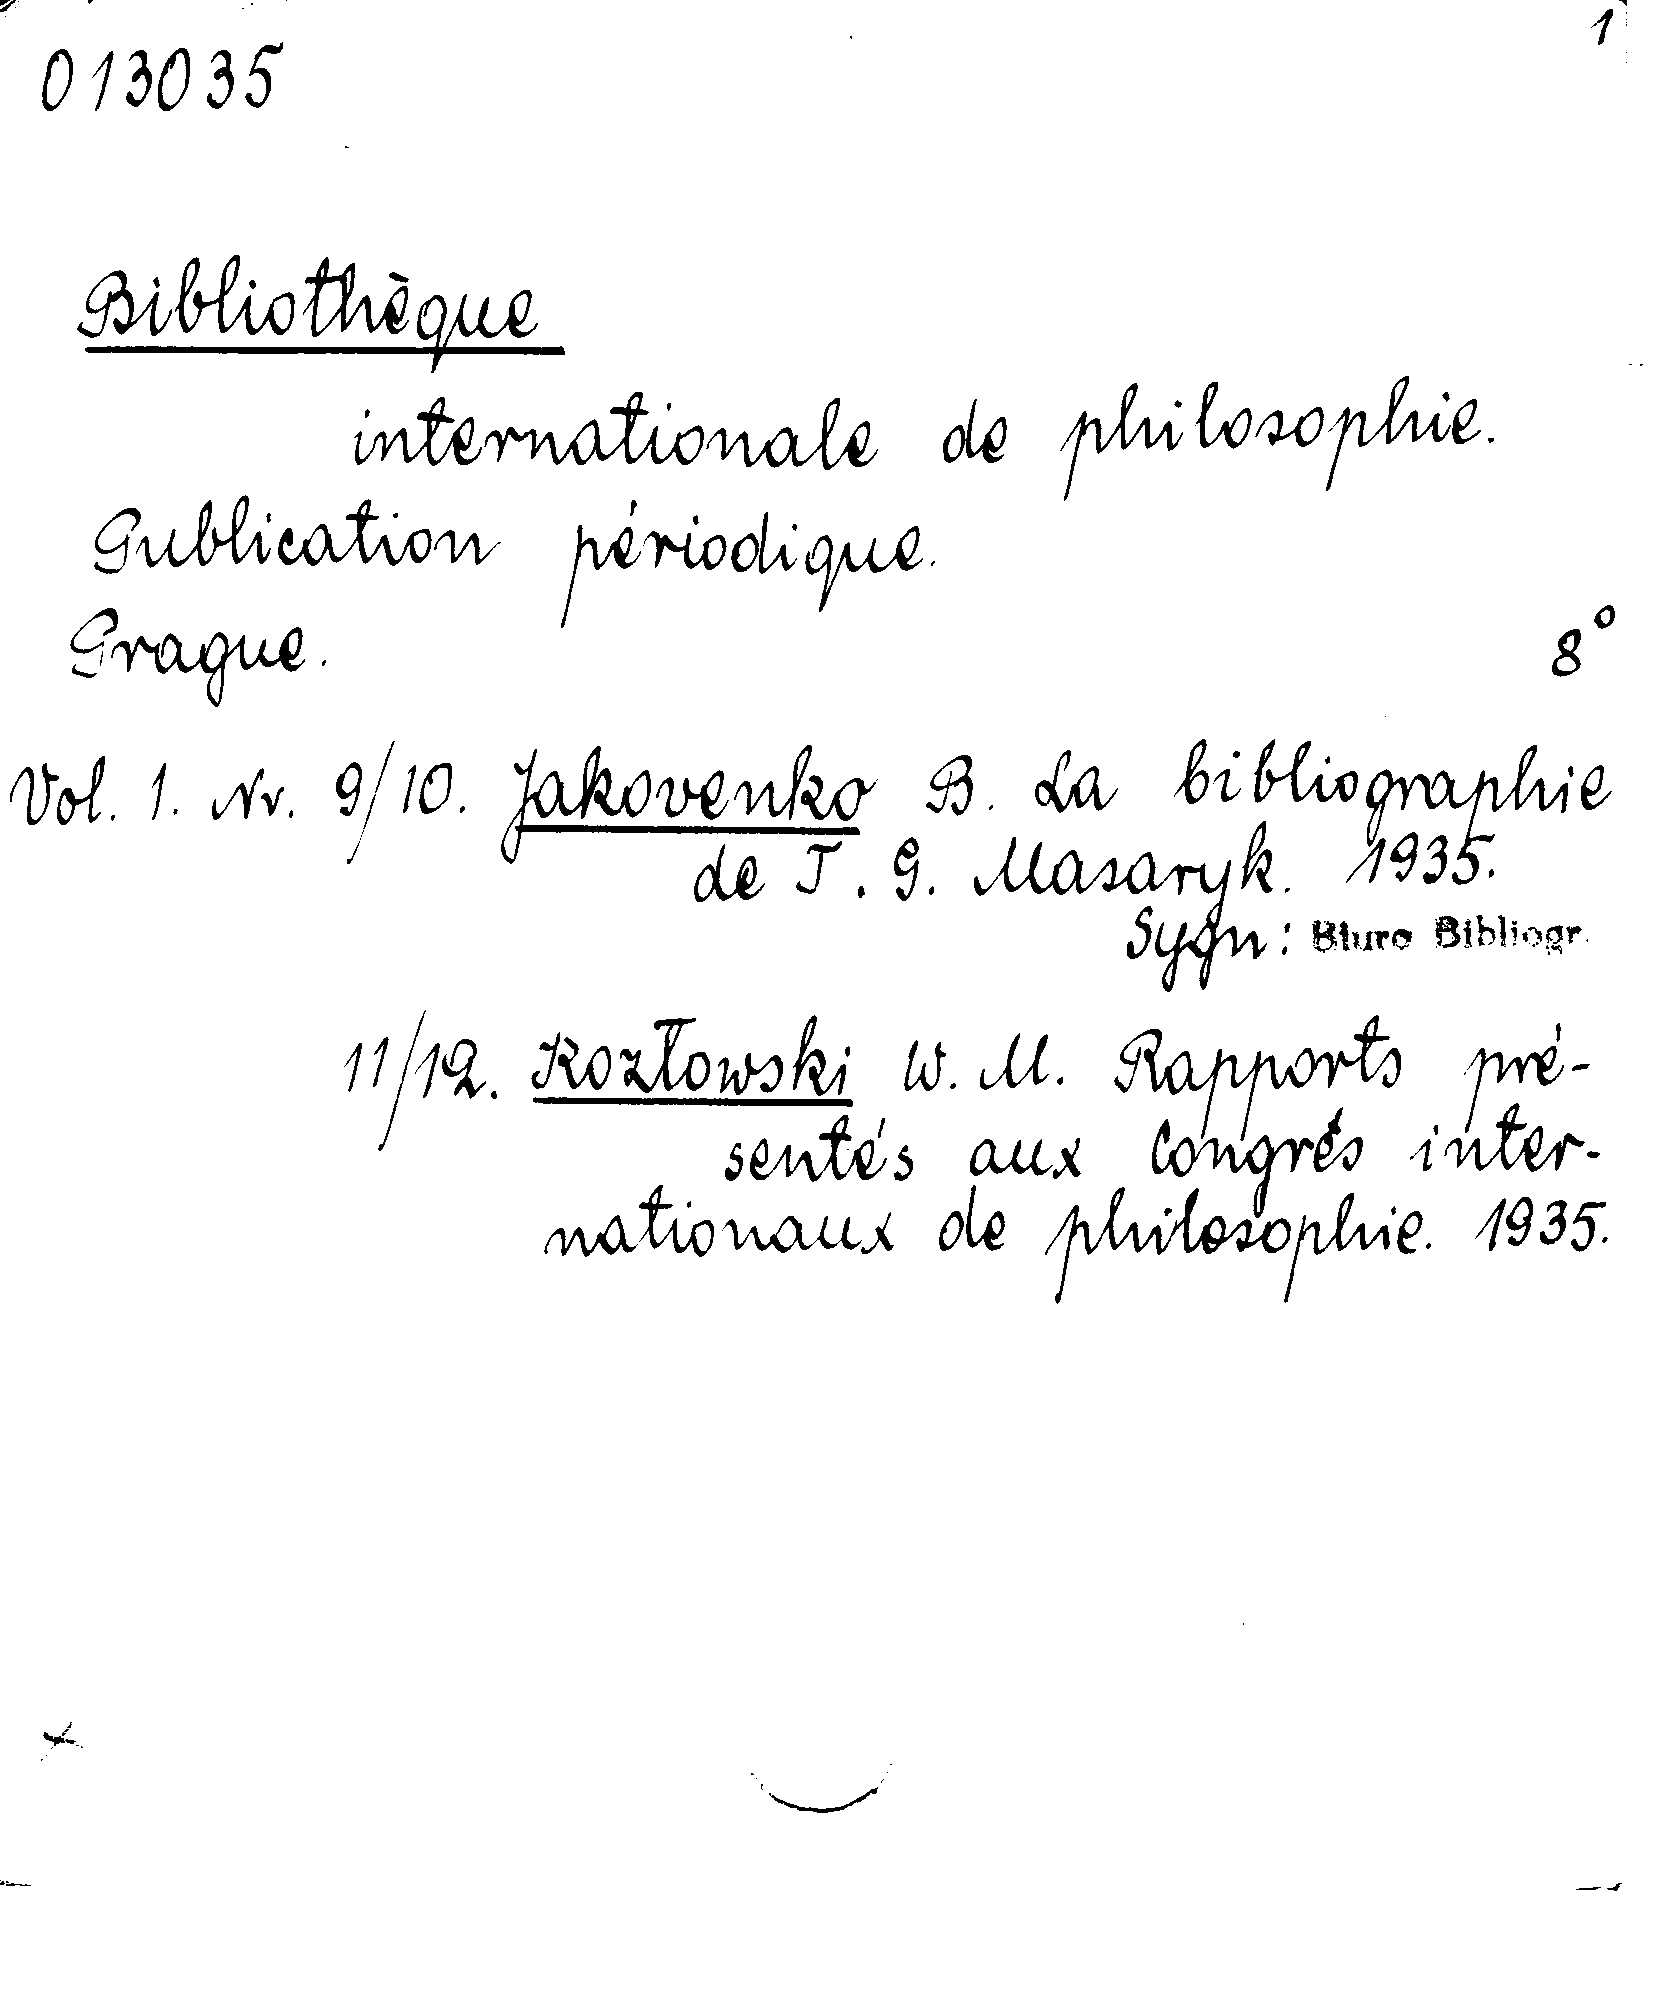 1
013035
Bibliothèque
internationale de philosophie.
Publication périodique.
Prague. 8°
Vol. 1. Nr. 9/10. Jakovenko B. La bibliographie
de T. G. Masaryk. 1935.
Sygn: Biuro Bibliogr.
11/12. Kozłowski W. M. Rapports pré-
sentés aux Congrés inter-
nationaux de philosophie. 1935.